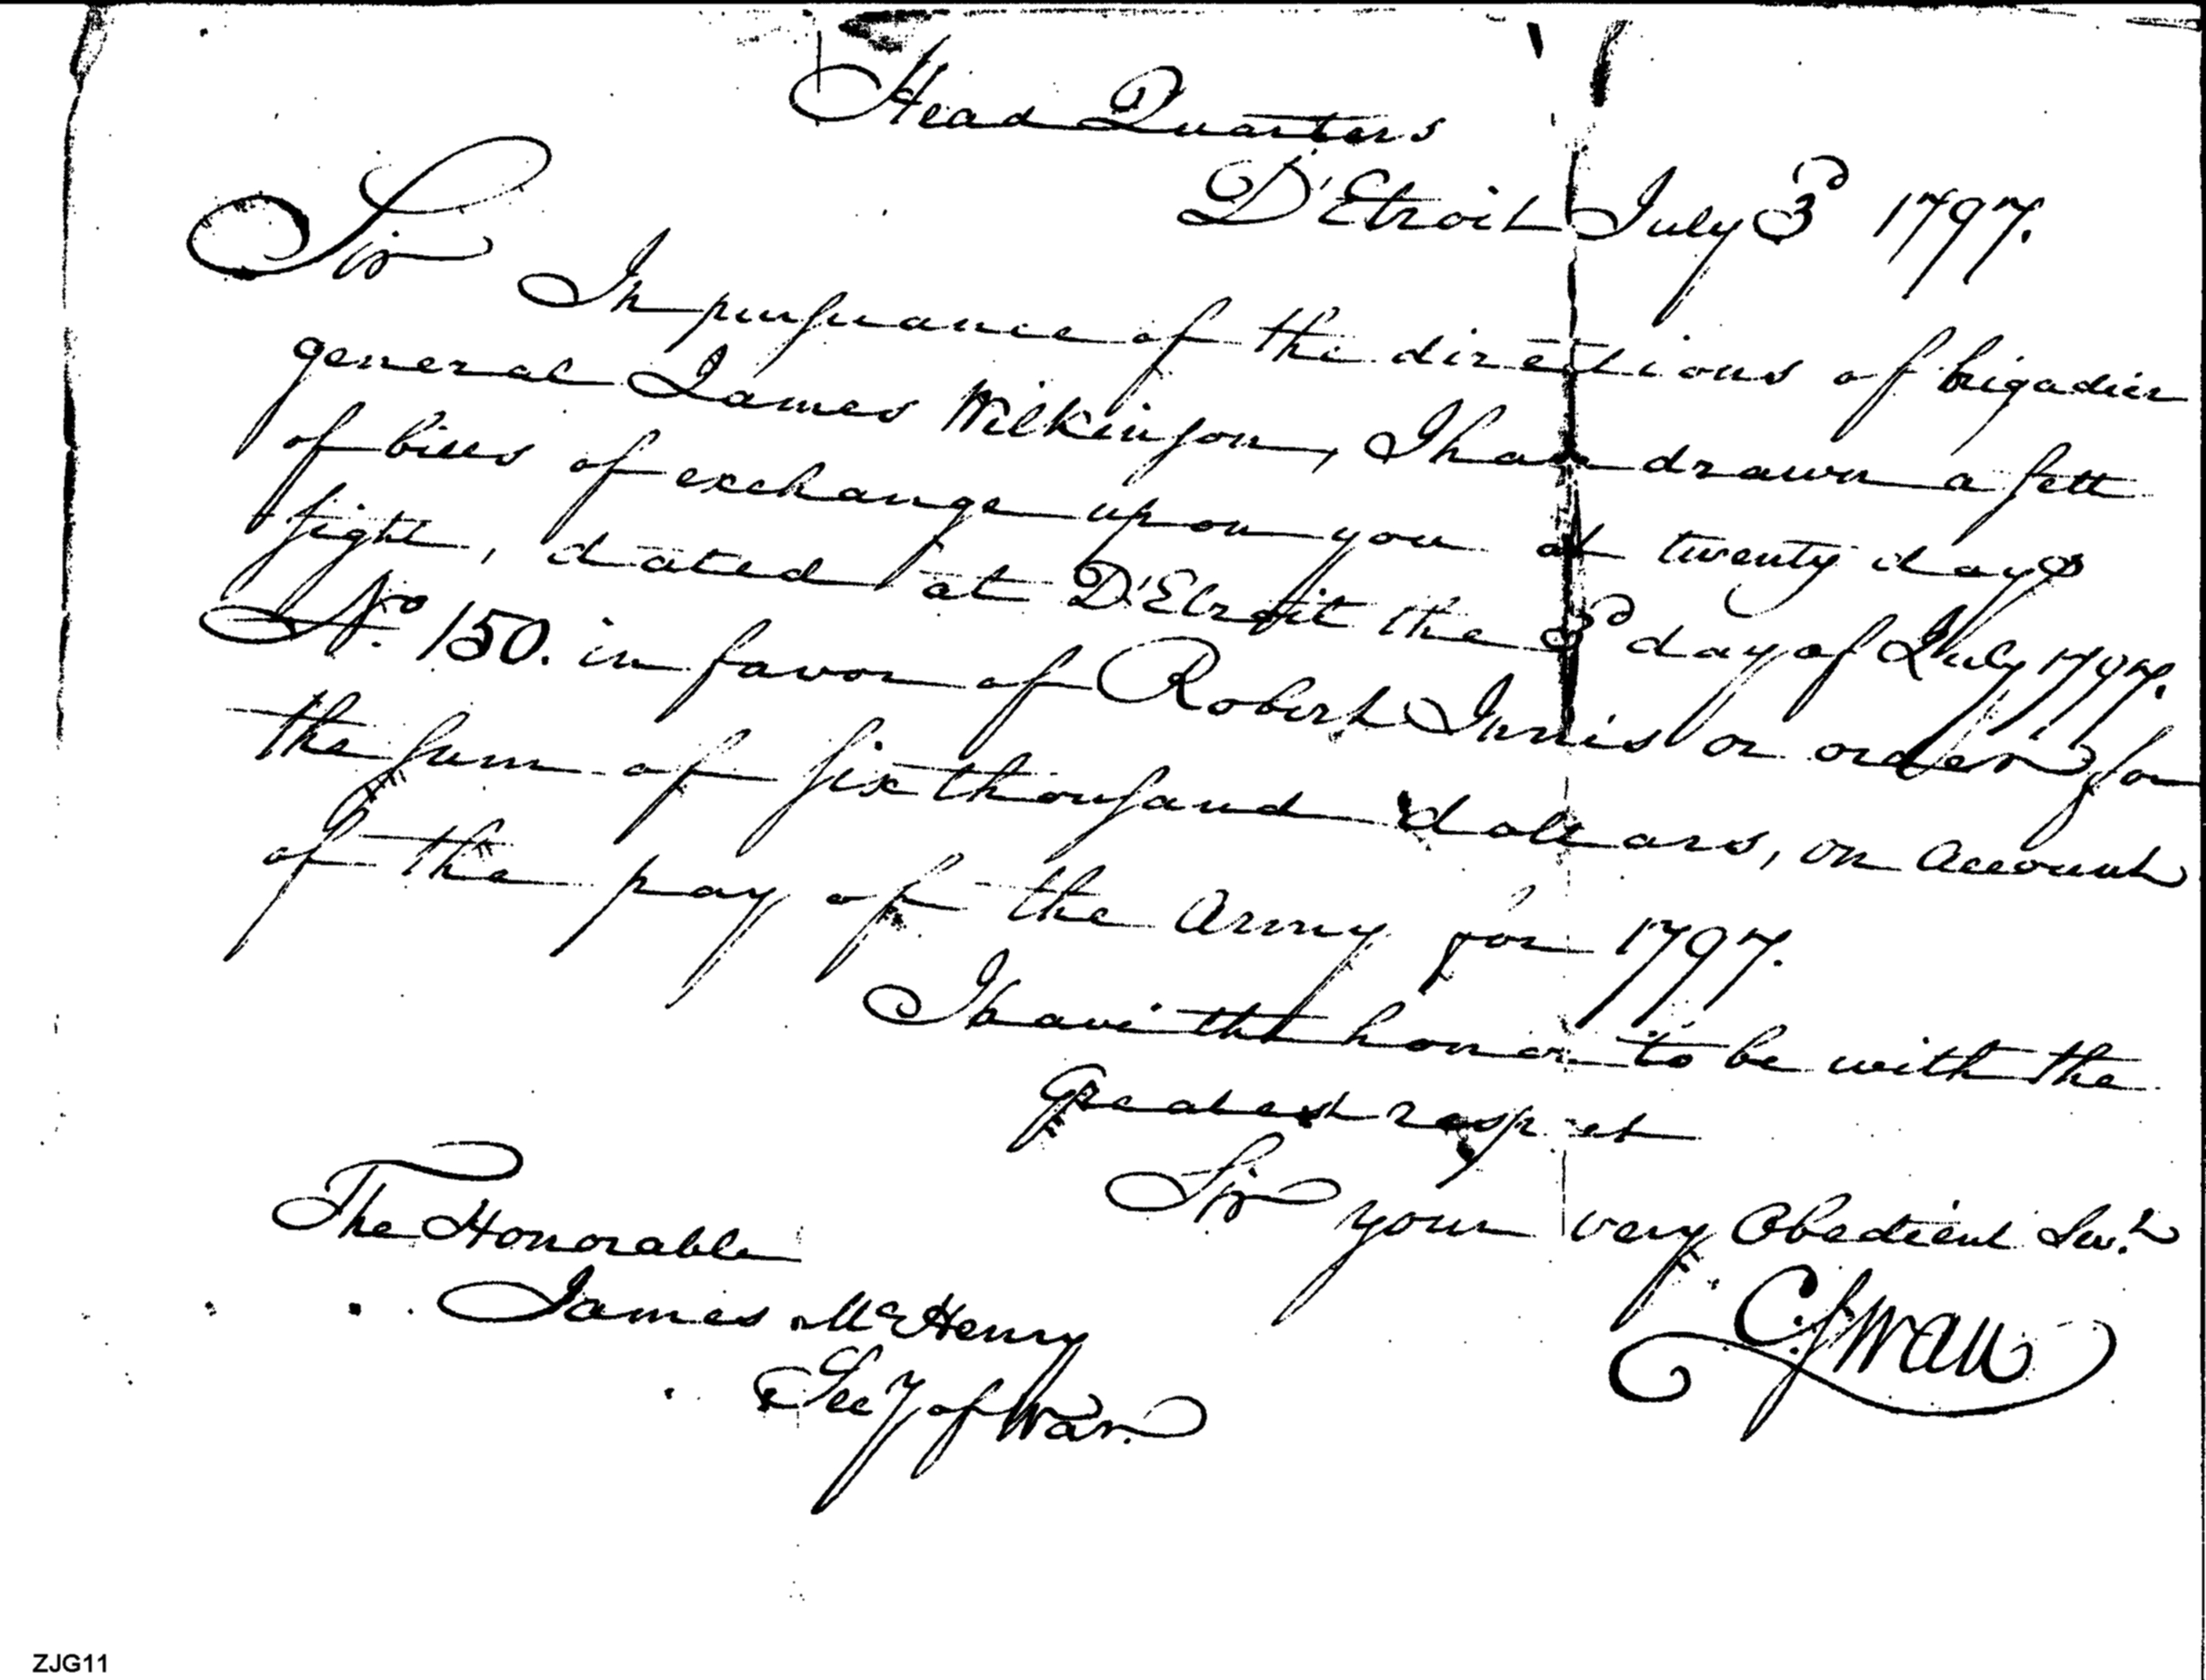 Head Quarters
D'Etroit July 3d 1797.
Sir
In pursuance of the directions of brigadier
general James Wilkinson, I have drawn a sett
of bills of exchange upon you at twenty days
sight, dated at D'Etroit the 3d day of July 1797.
No. 150. in favor of Robert Innis or order for
the sum of six thousand dollars, on account
of the pay of the Army for 1797.
I have the honor to be with the
greatest respect
Sir your very Obedient Sert.
C. Swan
The Honorable
James McHenry
Secy of War.
ZJG11